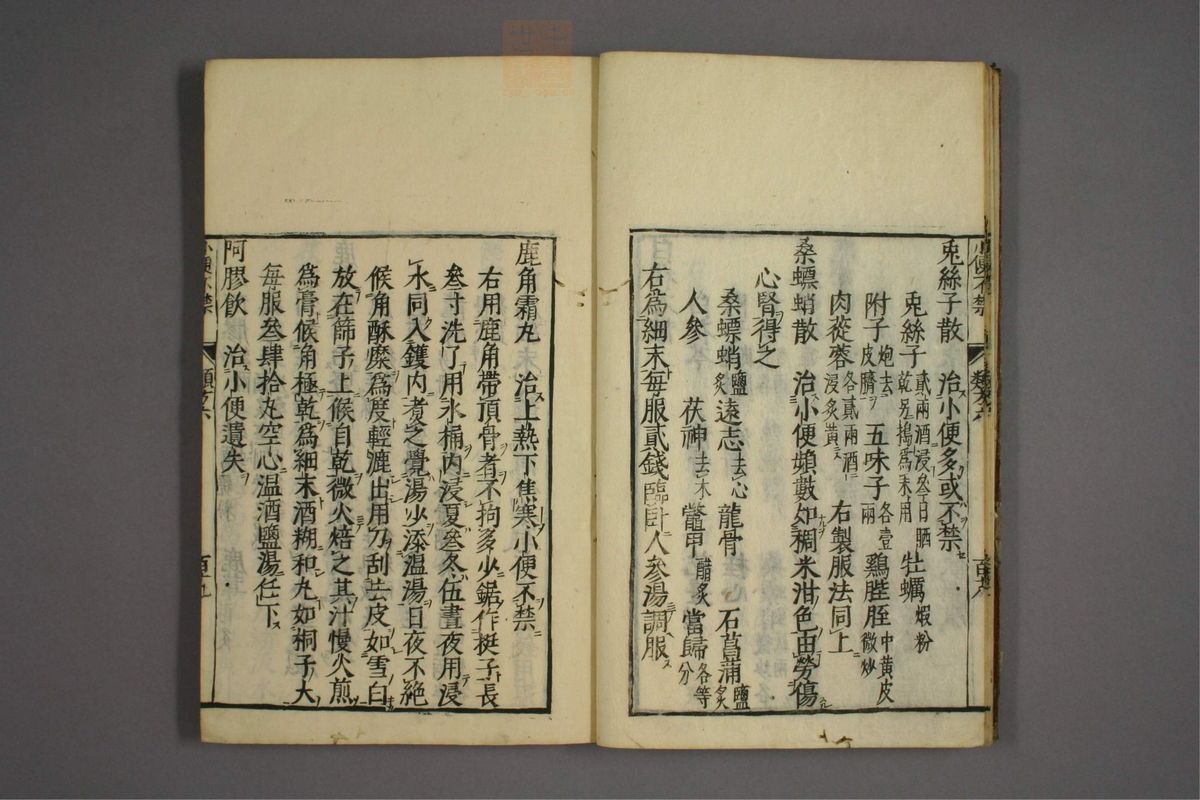 兎絲子散 治小便多或不禁
兎絲子 貳兩酒浸叁日晒乾另搗爲末用 牡蠣 蝦粉
附子 炮去皮臍 五味子 各壹兩 鷄膍胵 中黄皮微炒
肉蓯蓉 各貳兩酒浸炙黄 右製服法同上
桑螵蛸散 治小便頻數如稠米泔色由勞傷
心腎得之
桑螵蛸 鹽炙 遠志 去心 龍骨 石菖蒲 鹽炙
人參 茯神 去木 鼈甲 醋炙 當歸 各等分
右爲細末每服貳錢臨卧人參湯調服
鹿角霜丸 治上熱下焦寒小便不禁
右用鹿角帶頂骨者不拘多少鋸作梃子長
叁寸洗了用水桶内浸夏叁冬伍晝夜用浸
水同入鑊内煑之覺湯少添温湯日夜不絶
候角酥糜爲度輕漉出用刀刮去皮如雪白
放在篩子上候自乾微火焙之其汁慢火煎
爲膏候角極乾爲細末酒糊和丸如桐子大
每服叁肆拾丸空心温酒鹽湯任下
阿膠飲 治小便遺失
小便不禁